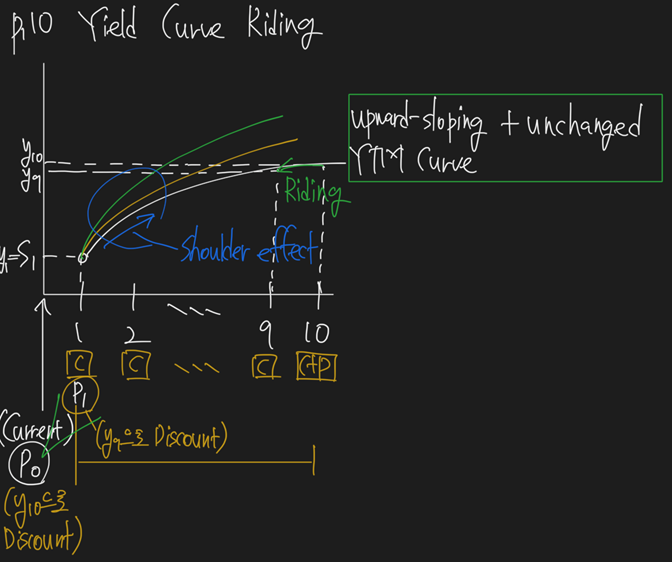 p.10 Yield Curve Riding
upward-sloping + unchanged
YTM Curve
y10
y9
Riding
Shoulder effect
y1=S1
1 2 9 10
C C C C+P
P1
(Current)
(y9으로 Discount)
P0
(y10으로
Discount)